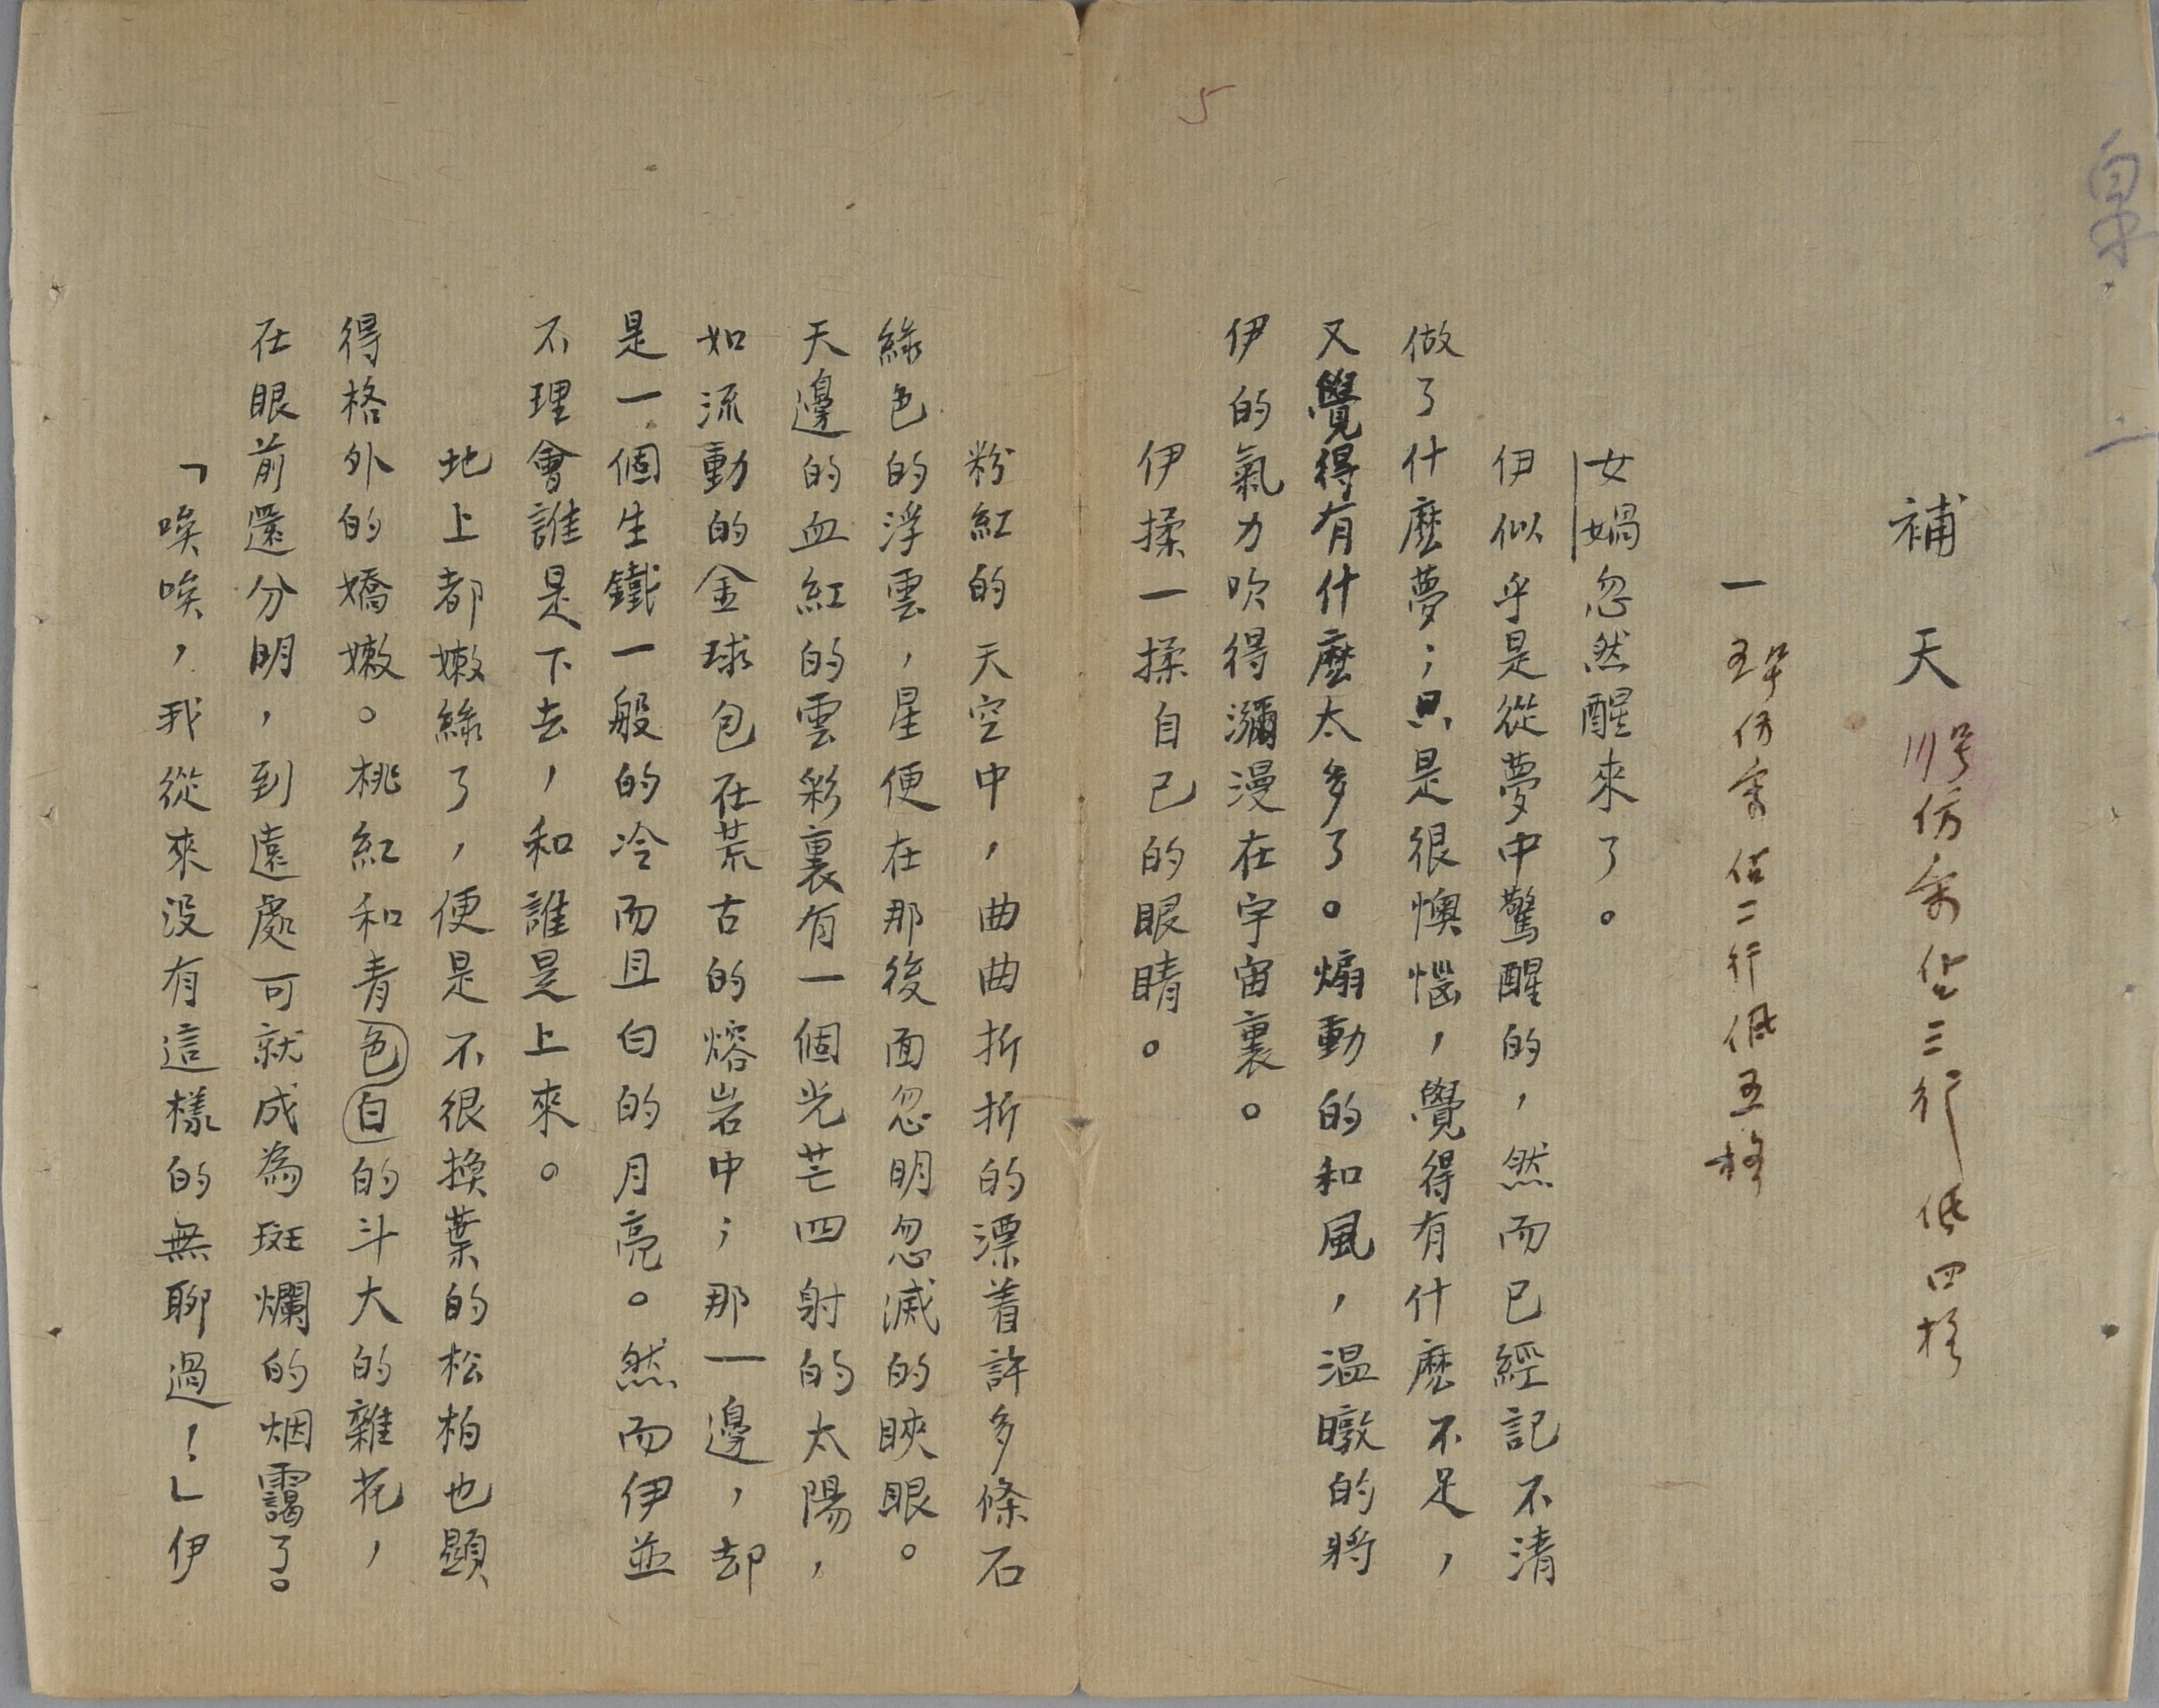 補天 川号仿宋佔三行低四格
一 五号仿宋佔二行低五格
女媧忽然醒來了。
伊似乎是從夢中驚醒的，然而已經記不清
做了什麽夢；只是很懊惱，覺得有什麽不足，
又覺得有什麽太多了。煽動的和風，温暾的將
伊的氣力吹得瀰漫在宇宙裏。
伊揉一揉自己的眼睛。
粉紅的天空中，曲曲折折的漂着許多條石
綠色的浮雲，星便在那後面忽明忽滅的䀹眼。
天邊的血紅的雲彩裏有一個光芒四射的太陽，
如流動的金球包在荒古的熔岩中；那一邊，却
是一個生鐵一般的冷而且白的月亮。然而伊並
不理會誰是下去，和誰是上來。
地上都嫩綠了，便是不很換葉的松柏也顯
得格外的嬌嫩。桃紅和青色白的斗大的雜花，
在眼前還分明，到遠處可就成為斑斕的烟靄了。
「唉唉，我從來没有這樣的無聊過！」伊
5